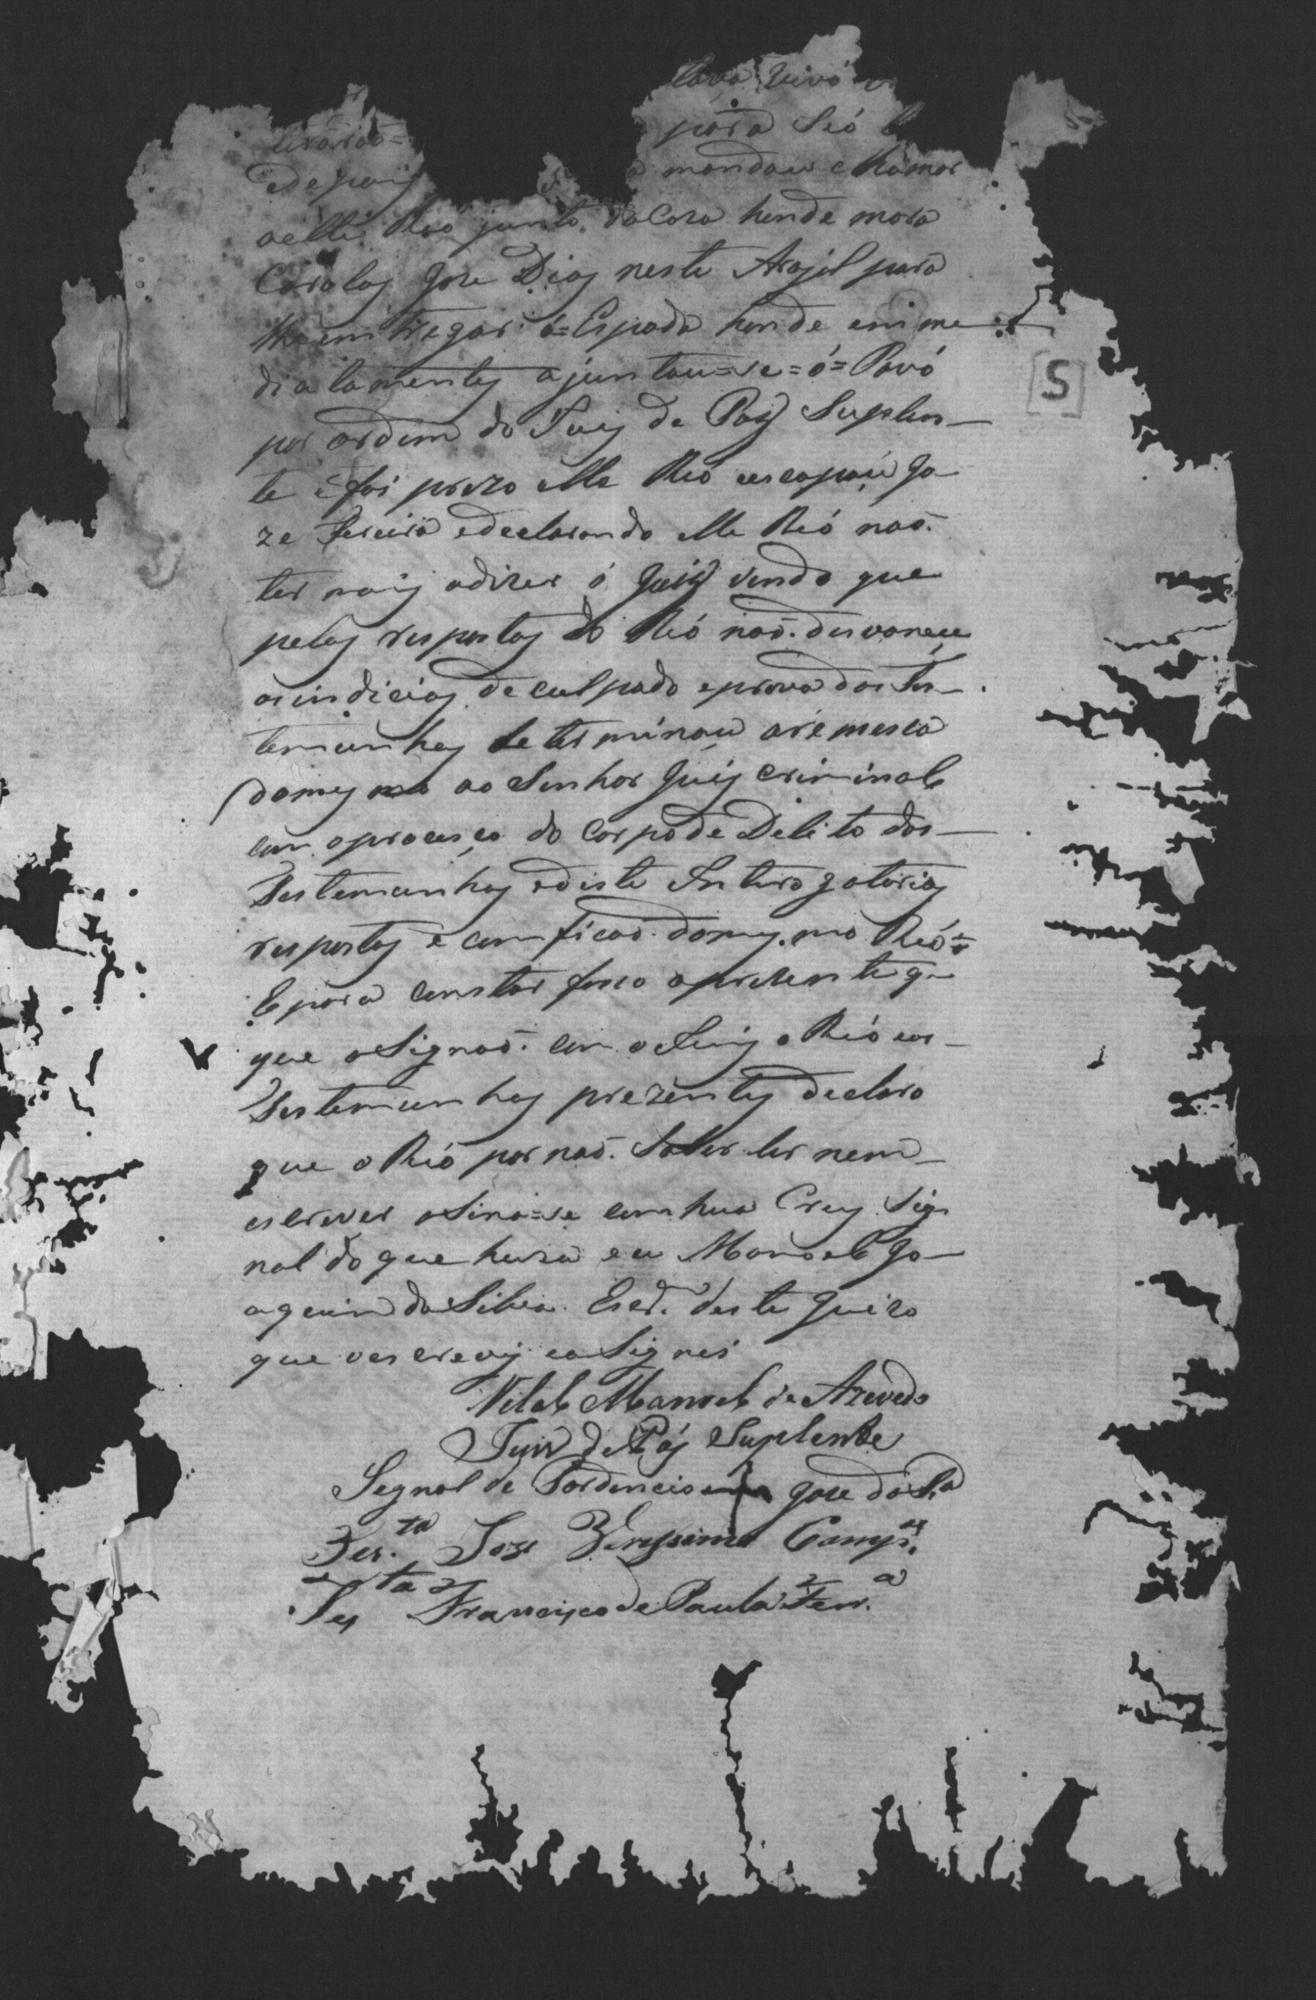 lava vivo
tirarão= para Seó
edepois mandou chamar
aelle Reó junto da Caza hende mora
Carolos Joze Dias neste Arajál para
lhe emtregar á=Espada hende emime
diatamentes ajuntou=se=ó=Povó
por ordem do Juiz de Paz Suplen-
te é foi prezo elle Reó escapou Jo
ze Pereira edeclarando elle Reó naõ
ter mais adizer ó Juiz vendo que
pelas respostas do Reó naõ desvanece
os indicios de culpado eprova das Tes-
temunhas determinou aremesca
domesmo ao Senhor Juiz criminal
com oprocesço do Corpo de Delito das
Testemunhas edeste Enterogatorios
respostas e comficaõ domesmo Reó=
E para constar fasso aprezente q
que asignaõ com o Juiz o Reó eas
Testemunhas prezentes declaro
que o Reó por naõ saber ler nem
escrever asina=se com hua Crus Sig
nal do que huza eu Manoel Jo
aquim da Silva Escr.am deste Juizo
que oescrevy easignei
Vital Manoel de Azevedo
Juis de Páz Suplente
Segnal de Joze da S.a
Tes.ta Joze Verissimo Camp.
Tes.ta Francisco de Paula Ferr.a
S